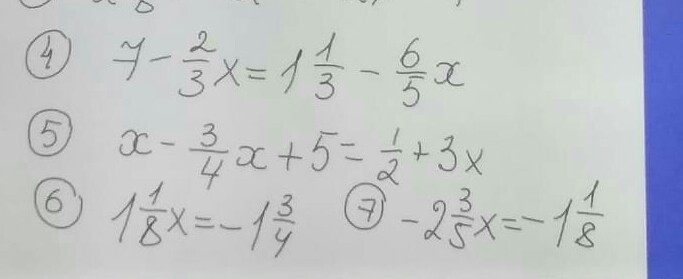 ④ 7 - 2/3 x = 1 1/3 - 6/5 x
⑤ x - 3/4 x + 5 = 1/2 + 3x
⑥ 1 1/8 x = -1 3/4 ⑦ -2 3/5 x = -1 1/8